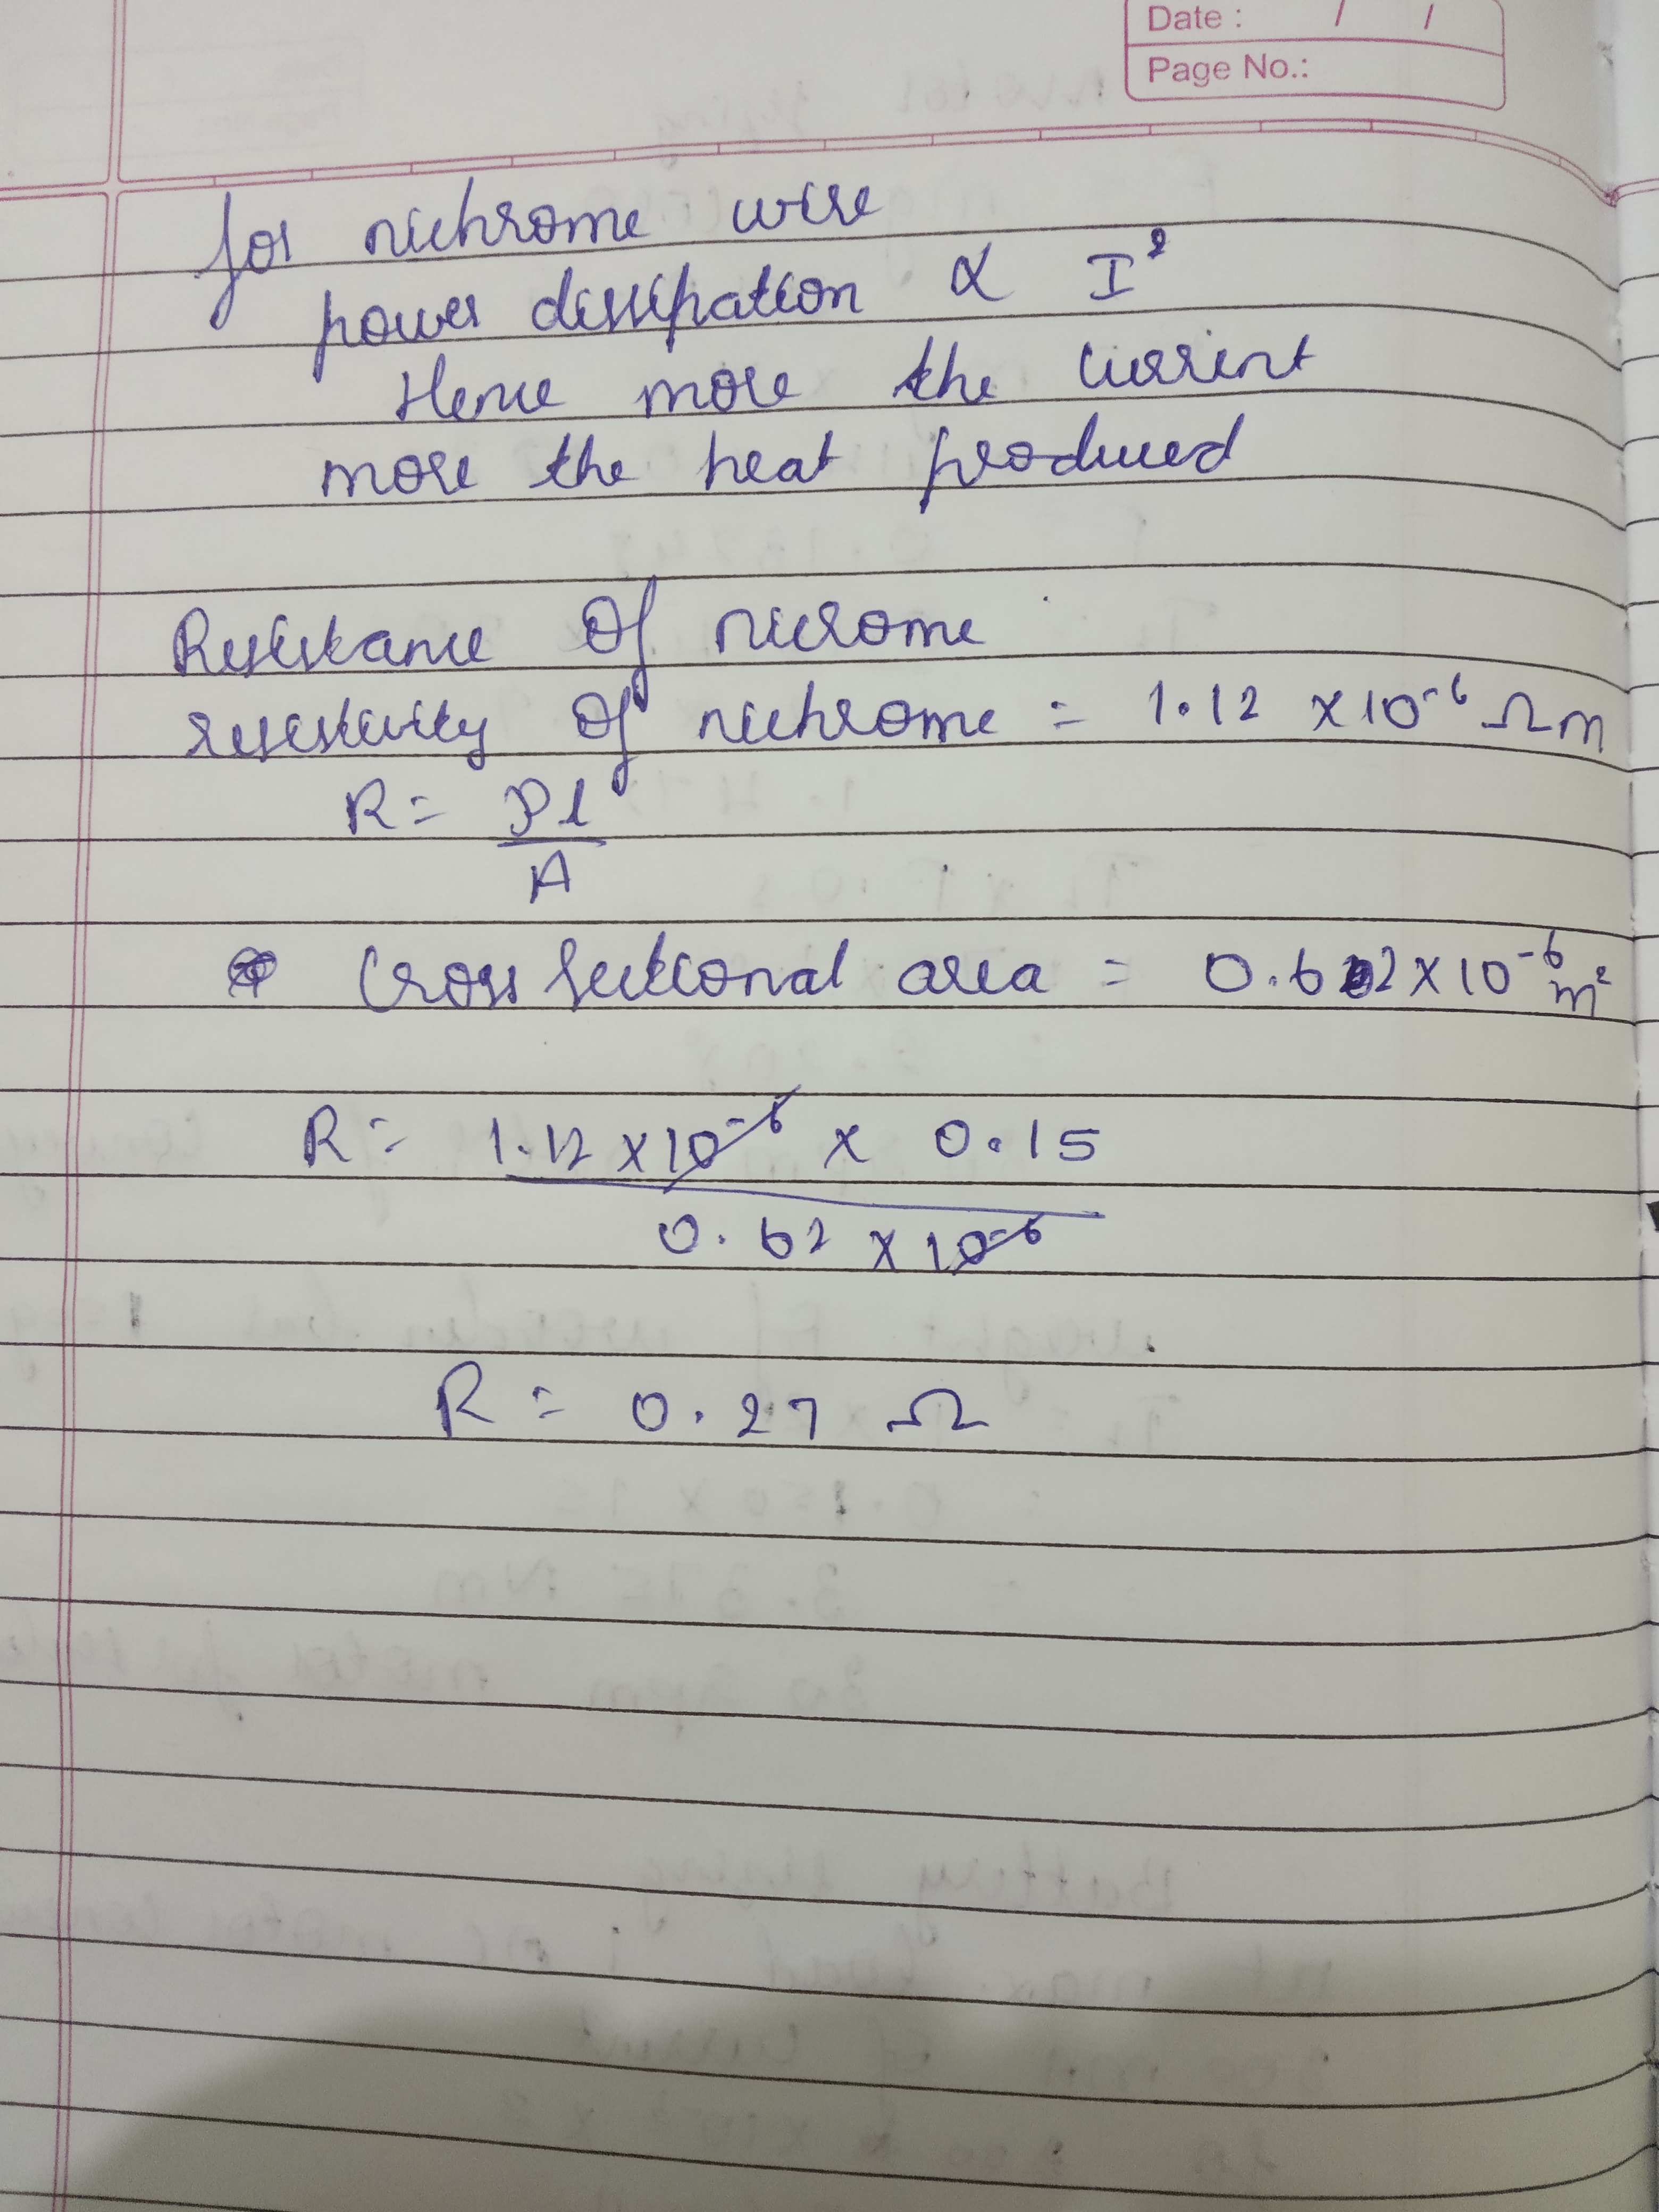 Date : / /
Page No.:
for nichrome wire
power dissipation ∝ I²
Hence more the current
more the heat produced
Resistance Of nicrome
resistivity Of nichrome = 1.12 ×10⁻⁶ Ωm
R = ρl
A
Cross sectional area = 0.62×10⁻⁶ m²
R = 1.12 ×10⁻⁶ × 0.15
0.62 ×10⁻⁶
R = 0.27 Ω